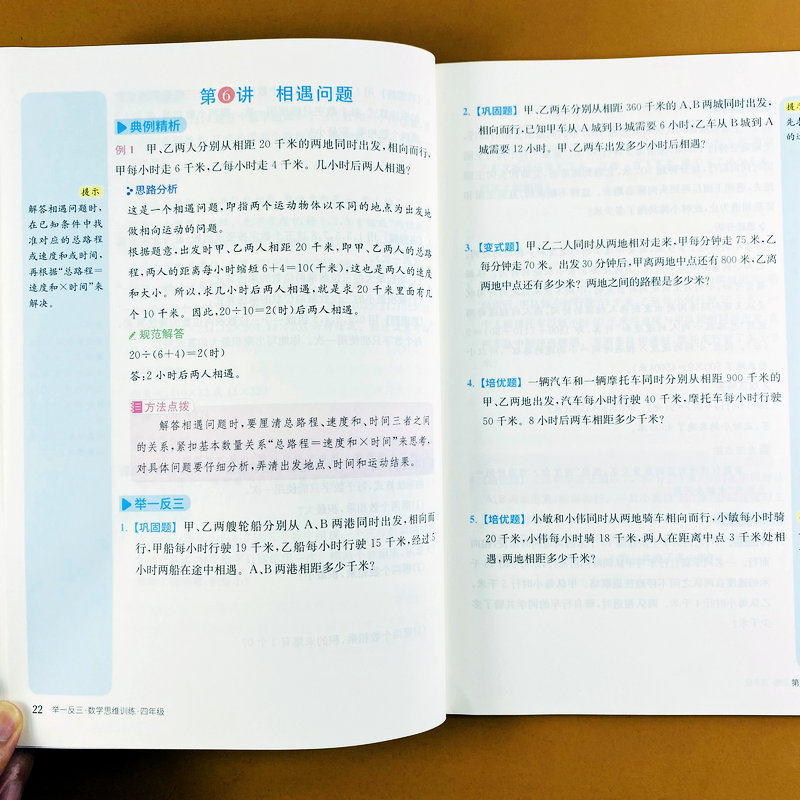 第6讲 相遇问题
典例精析
例1 甲、乙两人分别从相距 20 千米的两地同时出发,相向而行,
甲每小时走 6 千米,乙每小时走 4 千米。几小时后两人相遇?
思路分析
提示
解答相遇问题时,
在已知条件中找
准对应的总路程
或速度和或时间,
再根据“总路程=
速度和×时间”来
解决。
这是一个相遇问题,即指两个运动物体以不同的地点为出发地
做相向运动的问题。
根据题意,出发时甲、乙两人相距 20 千米,即甲、乙两人的总路
程,两人的距离每小时缩短 6+4=10(千米),这也是两人的速度
和大小。所以,求几小时后两人相遇,就是求 20 千米里面有几
个 10 千米。因此,20÷10=2(时)后两人相遇。
规范解答
20÷(6+4)=2(时)
答:2 小时后两人相遇。
方法点拨
解答相遇问题时,要厘清总路程、速度和、时间三者之间
的关系,紧扣基本数量关系“总路程=速度和×时间”来思考,
对具体问题要仔细分析,弄清出发地点、时间和运动结果。
举一反三
1.【巩固题】甲、乙两艘轮船分别从 A、B 两港同时出发,相向而
行,甲船每小时行驶 19 千米,乙船每小时行驶 15 千米,经过 5
小时两船在途中相遇。A、B 两港相距多少千米?
22 举一反三·数学思维训练·四年级
2.【巩固题】甲、乙两车分别从相距 360 千米的 A、B 两城同时出发,
相向而行,已知甲车从 A 城到 B 城需要 6 小时,乙车从 B 城到 A
城需要 12 小时。甲、乙两车出发多少小时后相遇?
3.【变式题】甲、乙二人同时从两地相对走来,甲每分钟走 75 米,乙
每分钟走 70 米。出发 30 分钟后,甲离两地中点还有 800 米,乙离
两地中点还有多少米?两地之间的路程是多少米?
4.【培优题】一辆汽车和一辆摩托车同时分别从相距 900 千米的
甲、乙两地出发,汽车每小时行驶 40 千米,摩托车每小时行驶
50 千米。8 小时后两车相距多少千米?
5.【培优题】小敏和小伟同时从两地骑车相向而行,小敏每小时骑
20 千米,小伟每小时骑 18 千米,两人在距离中点 3 千米处相
遇,两地相距多少千米?
提示
先
的
第